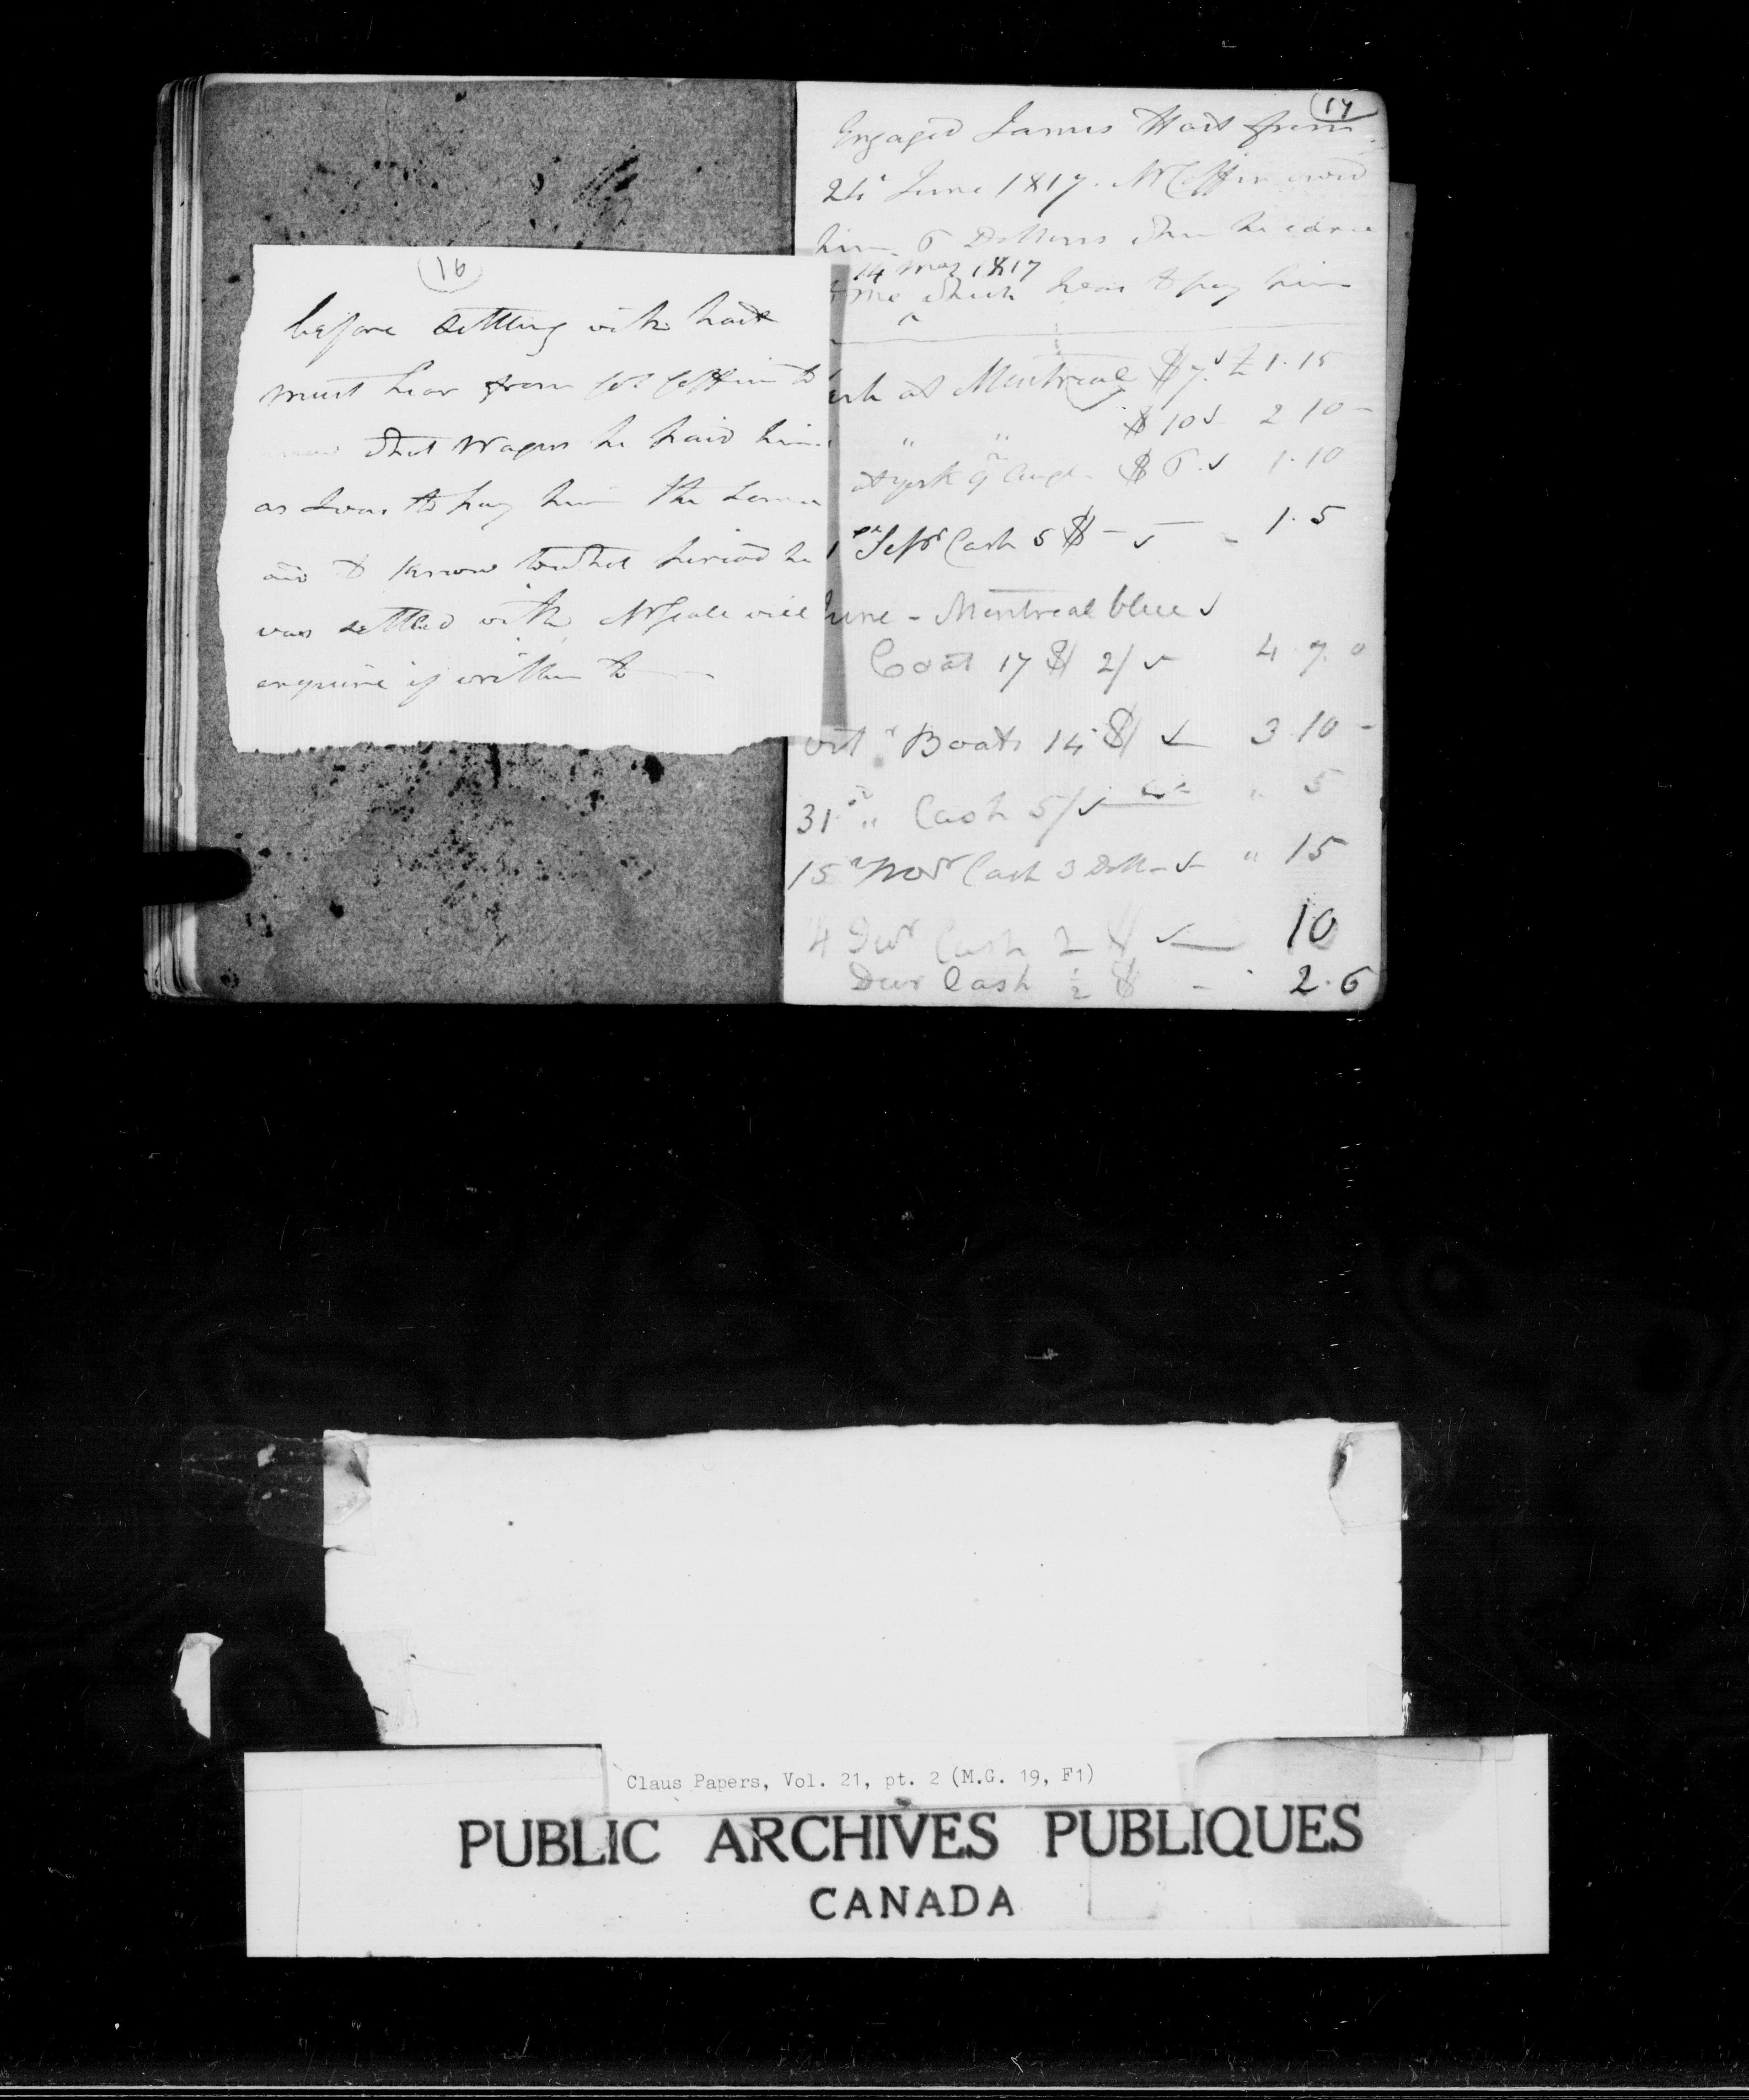 (16)
before settling with hait
must hear from Col Coffin to
know what wages he paid him
as I was to pay him the same
and to know to what period he
was settled with, Mr Gale will
enquire if written to
(17)
Engaged James Hait from
24 June 1817. Mr Coffin owed
him 6 Dollars when he came
14 May 1817
to me which I was to pay him
Cash at Montreal $7. £1.15
" " $10 2 10 -
at york 9th Augt - $6. 1.10
1st Sepr Cash 5 $ - - 1.5
June - Montreal blue
Coat 17 $ 2/ 4 7. 0
Oct r Boots 14 $ 3.10 -
31st " Cash 5/ " 5
15th Novr Cash 3 Doll - " 15
4 Decr Cash 2 $ 10
Decr Cash ½ $ - 2.6
Claus Papers, Vol. 21, pt. 2 (M.G. 19, F1)
PUBLIC ARCHIVES PUBLIQUES
CANADA